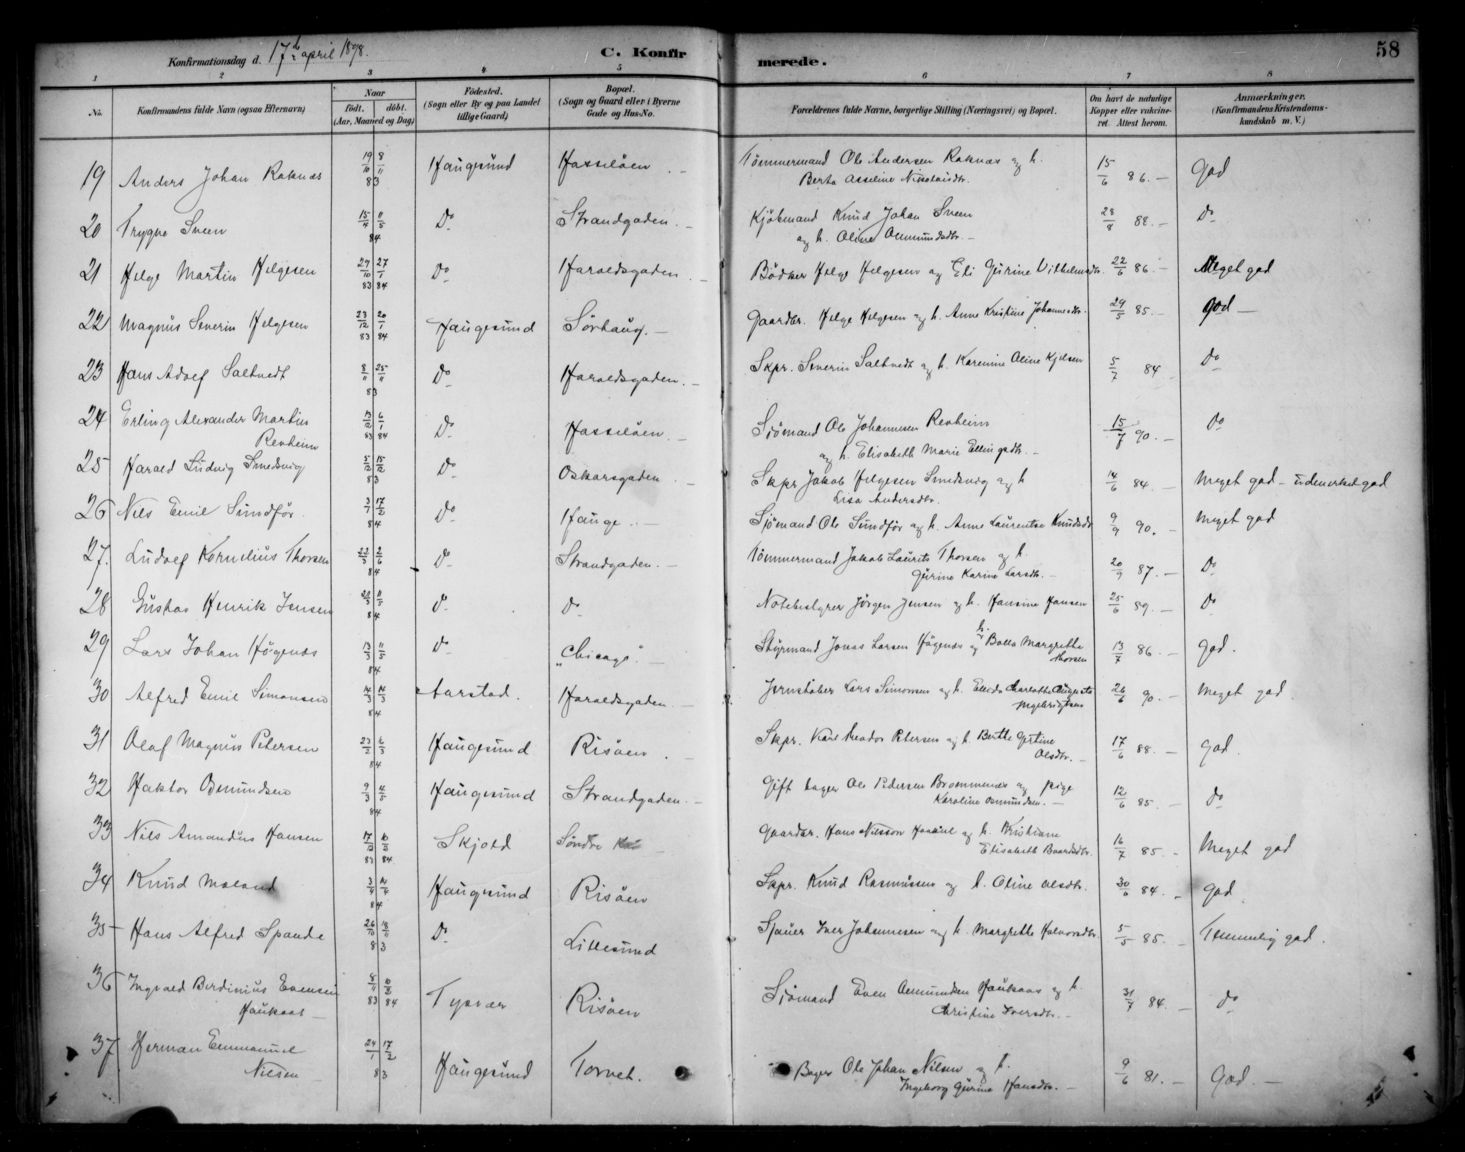 Konfirmationsdag d. 17de april 1898. C. Konfirmerede. 58
1 2 3 4 5 6 7 8
No. Konfirmandens fulde Navn (ogsaa Efternavn) Naar født. døbt. (Aar, Maaned og Dag) Fødested. (Sogn eller By og paa Landet tillige Gaard) Bopæl. (Sogn og Gaard eller i Byerne Gade og Hus-No.) Forældrenes fulde Navne, borgerlige Stilling (Næringsvei) og Bopæl. Om havt de naturlige Kopper eller vaksineret. Attest herom. Anmærkninger. (Konfirmandens Kristendomskundskab m. V.)
19 Anders Johan Roknæs 19/10 8/11 83 Haugesund Hasseløen. Tømmermand Ole Andersen Roknæs og h. 15/6 86. god
Berta Asseline Nikolaisdtr.
20 Trygve Sveen 15/4 11/5 84 Do Strandgaden. Kjøbmand Knud Johan Sveen 28/8 88. Do
og h. Oline Aamundsdtr.
21 Helge Martin Helgesen 29/10 83 27/1 84 Do Haraldsgaden Bødker Helge Helgesen og Eli Gurine Vilhelmsdtr. 22/6 86 Meget god
22 Magnus Severin Helgesen 23/12 83 20/1 84 Haugesund Sørhaug. Gaardbr. Helge Helgesen og h. Anne Kristine Johannesdtr. 29/5 85. god
23 Hans Adolf Saltvedt 8/11 25/11 83 Do Haraldsgaden. Skpr. Severin Saltvedt og h. Karenine Oline Kjelsen 5/7 84 Do
24 Erling Alexander Martin 13/12 83 6/1 84 Do Hasseløen. Sjömand Ole Johannesen Revheim 15/7 90. Do
Revheim og h. Elisabeth Marie Ellingsdtr.
25 Harald Ludvig Smedsvig 5/12 15/12 83 Do Oskarsgaden Skpr Jakob Helgesen Smedsvig og h 14/6 84. Meget god – udmerket god
Lisa Andersdtr.
26 Nils Emil Sundfør. 3/1 17/2 84 Do Hauge. Sjömand Ole Sundfør og h. Anne Laurentse Knudsdtr 9/9 90. Meget god
27. Ludvig Kornelius Thorsen 23/3 2/6 84 Do Strandgaden. Tømmermand Jakob Laurits Thorsen og h. 20/9 87. Do
Gurine Karine Larsdtr.
28 Gustav Henrik Jensen 22/3 11/5 84 Do Do Notebestyrer Jørgen Jensen og h. Hansine Hansen 25/6 89. Do
29 Lars Johan Høgenæs 13/3 11/5 84 Do "Chicago". Styrmand Jonas Larsen Høgenæs og h. Bolla Margrethe 13/7 86. god.
Thorsen
30 Alfred Emil Simonsen 84 Aarstad. Haraldsgaden. Jernstøber Lars Simonsen og h. Charlotte Auguste 26/6 90. Meget god
Ingebrigtsen
31 Olaf Magnus Petersen 23/2 6/3 84 Haugesund Risöen. Skpr. Karl Teodor Petersen og h. Berthe Gjertine 17/6 88. god.
Olsdtr.
32 Haktor Osmundsen 9/3 4/5 84 Haugesund Strandgaden. Gift bager Ole Pedersen Brommenæs og pige 12/6 85. Do
Karoline Osmundsen.
33 Nils Amandus Hansen 17/12 83 84 Skjold Søndre Gaardbr. Hans Nilsson og h. Kristiane 16/7 85. Meget god
Elisabeth Baardsdtr.
34 Knud Moland 84 Haugesund Risøen Skpr. Knud Rasmussen og h. Oline Olsdtr. 30/6 84. god
35 Hans Alfred Spande 26/10 18/11 83 Do Lillesund Sjauer Iver Johannesen og h. Margrethe Halvorsdtr 5/5 85. Temmelig god.
36 Ingvald Berdinius Evensen 83 84 Tysvær Risøen Sjömand Even Aamundsen Haukaas og h. 31/7 84. Do
Haukaas Christine Iversdtr.
37 Herman Emmanuel 24/1 17/2 83 Haugesund Torvet. Bager Ole Johan Nilsen og h. 9/6 81. God.
Nilsen Ingeborg Gurine Hansdtr.